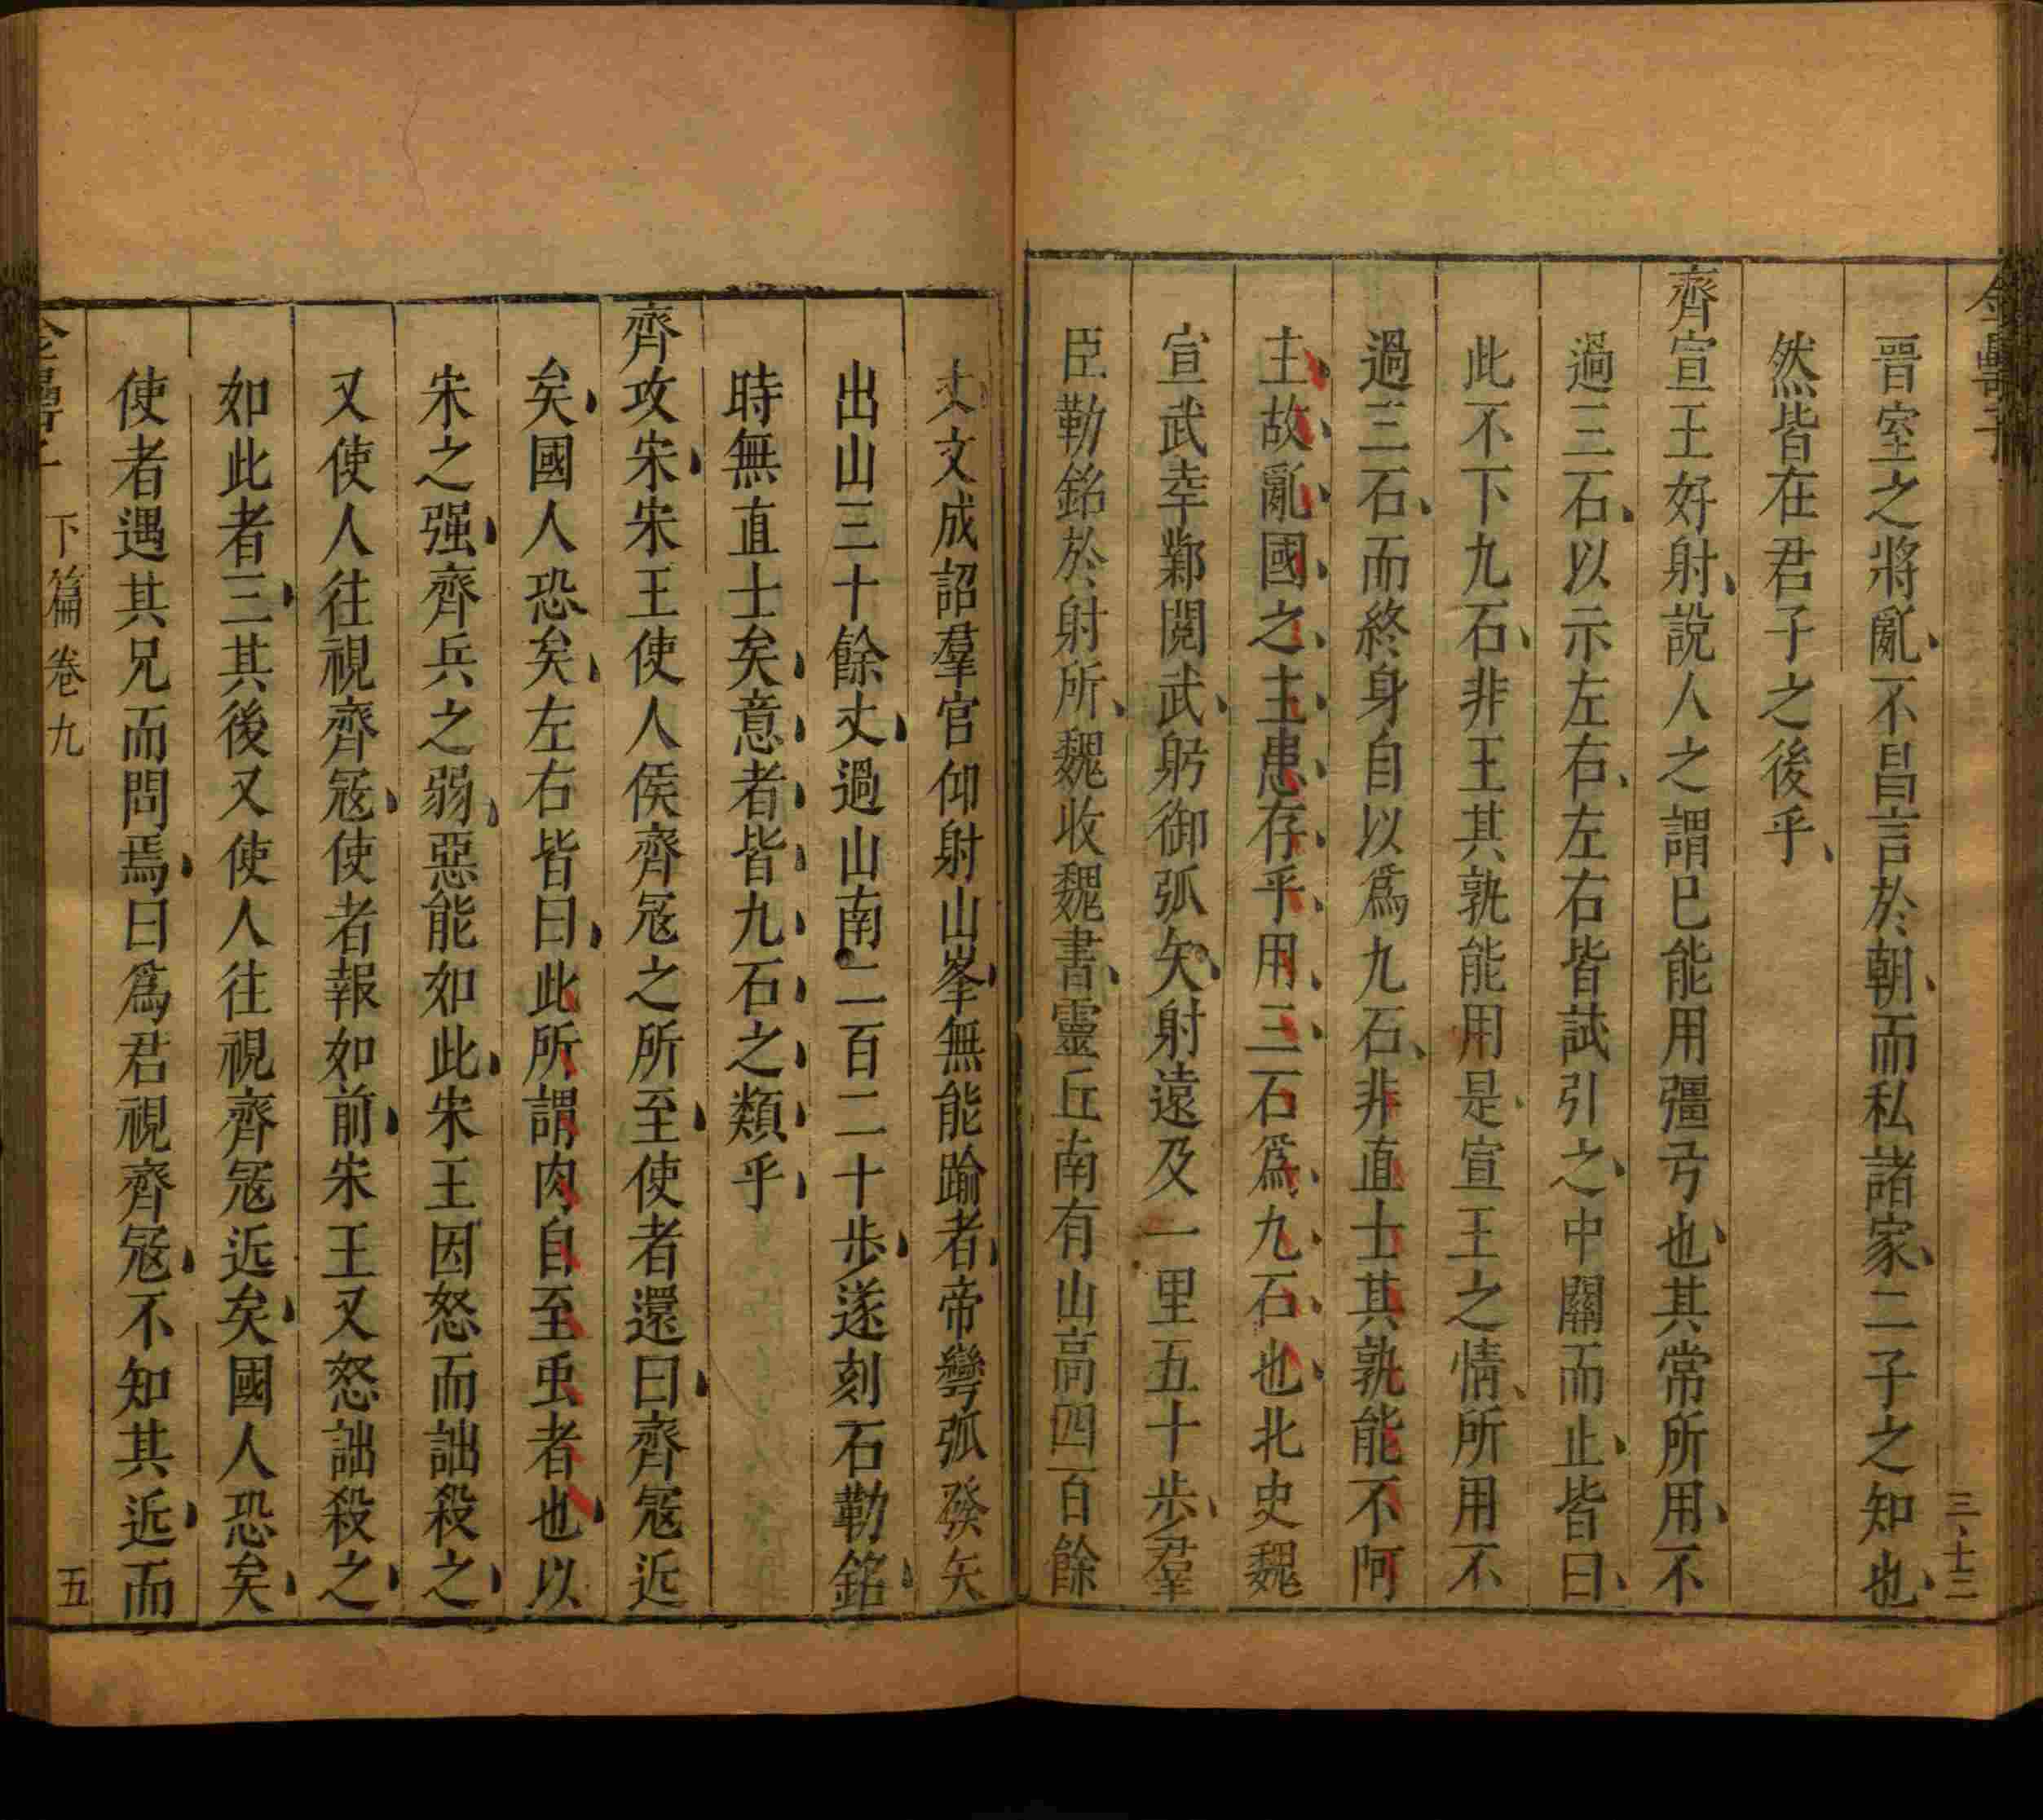 金罍子
三十二
晉室之將亂不昌言於朝而私諸家二子之知也
然皆在君子之後乎
齊宣王好射說人之謂巳能用彊弓也其常所用不
過三石以示左右左右皆試引之中關而止皆曰
此不下九石非王其孰能用是宣王之情所用不
過三石而終身自以爲九石非直士其孰能不阿
主故亂國之主患存乎用三石爲九石也北史魏
宣武幸鄴閱武躬御弧矢射遠及一里五十步羣
臣勒銘於射所魏收魏書靈丘南有山高四百餘
丈文成詔羣官仰射山峯無能踰者帝彎弧發矢
出山三十餘丈過山南二百二十步遂刻石勒銘
時無直士矣意者皆九石之類乎
齊攻宋宋王使人侯齊冦之所至使者還曰齊冦近
矣國人恐矣左右皆曰此所謂肉自至䖝者也以
宋之强齊兵之弱惡能如此宋王因怒而詘殺之
又使人往視齊冦使者報如前宋王又怒詘殺之
如此者三其後又使人往視齊冦近矣國人恐矣
使者遇其兄而問焉曰爲君視齊冦不知其近而
金罍子 下篇卷九 五